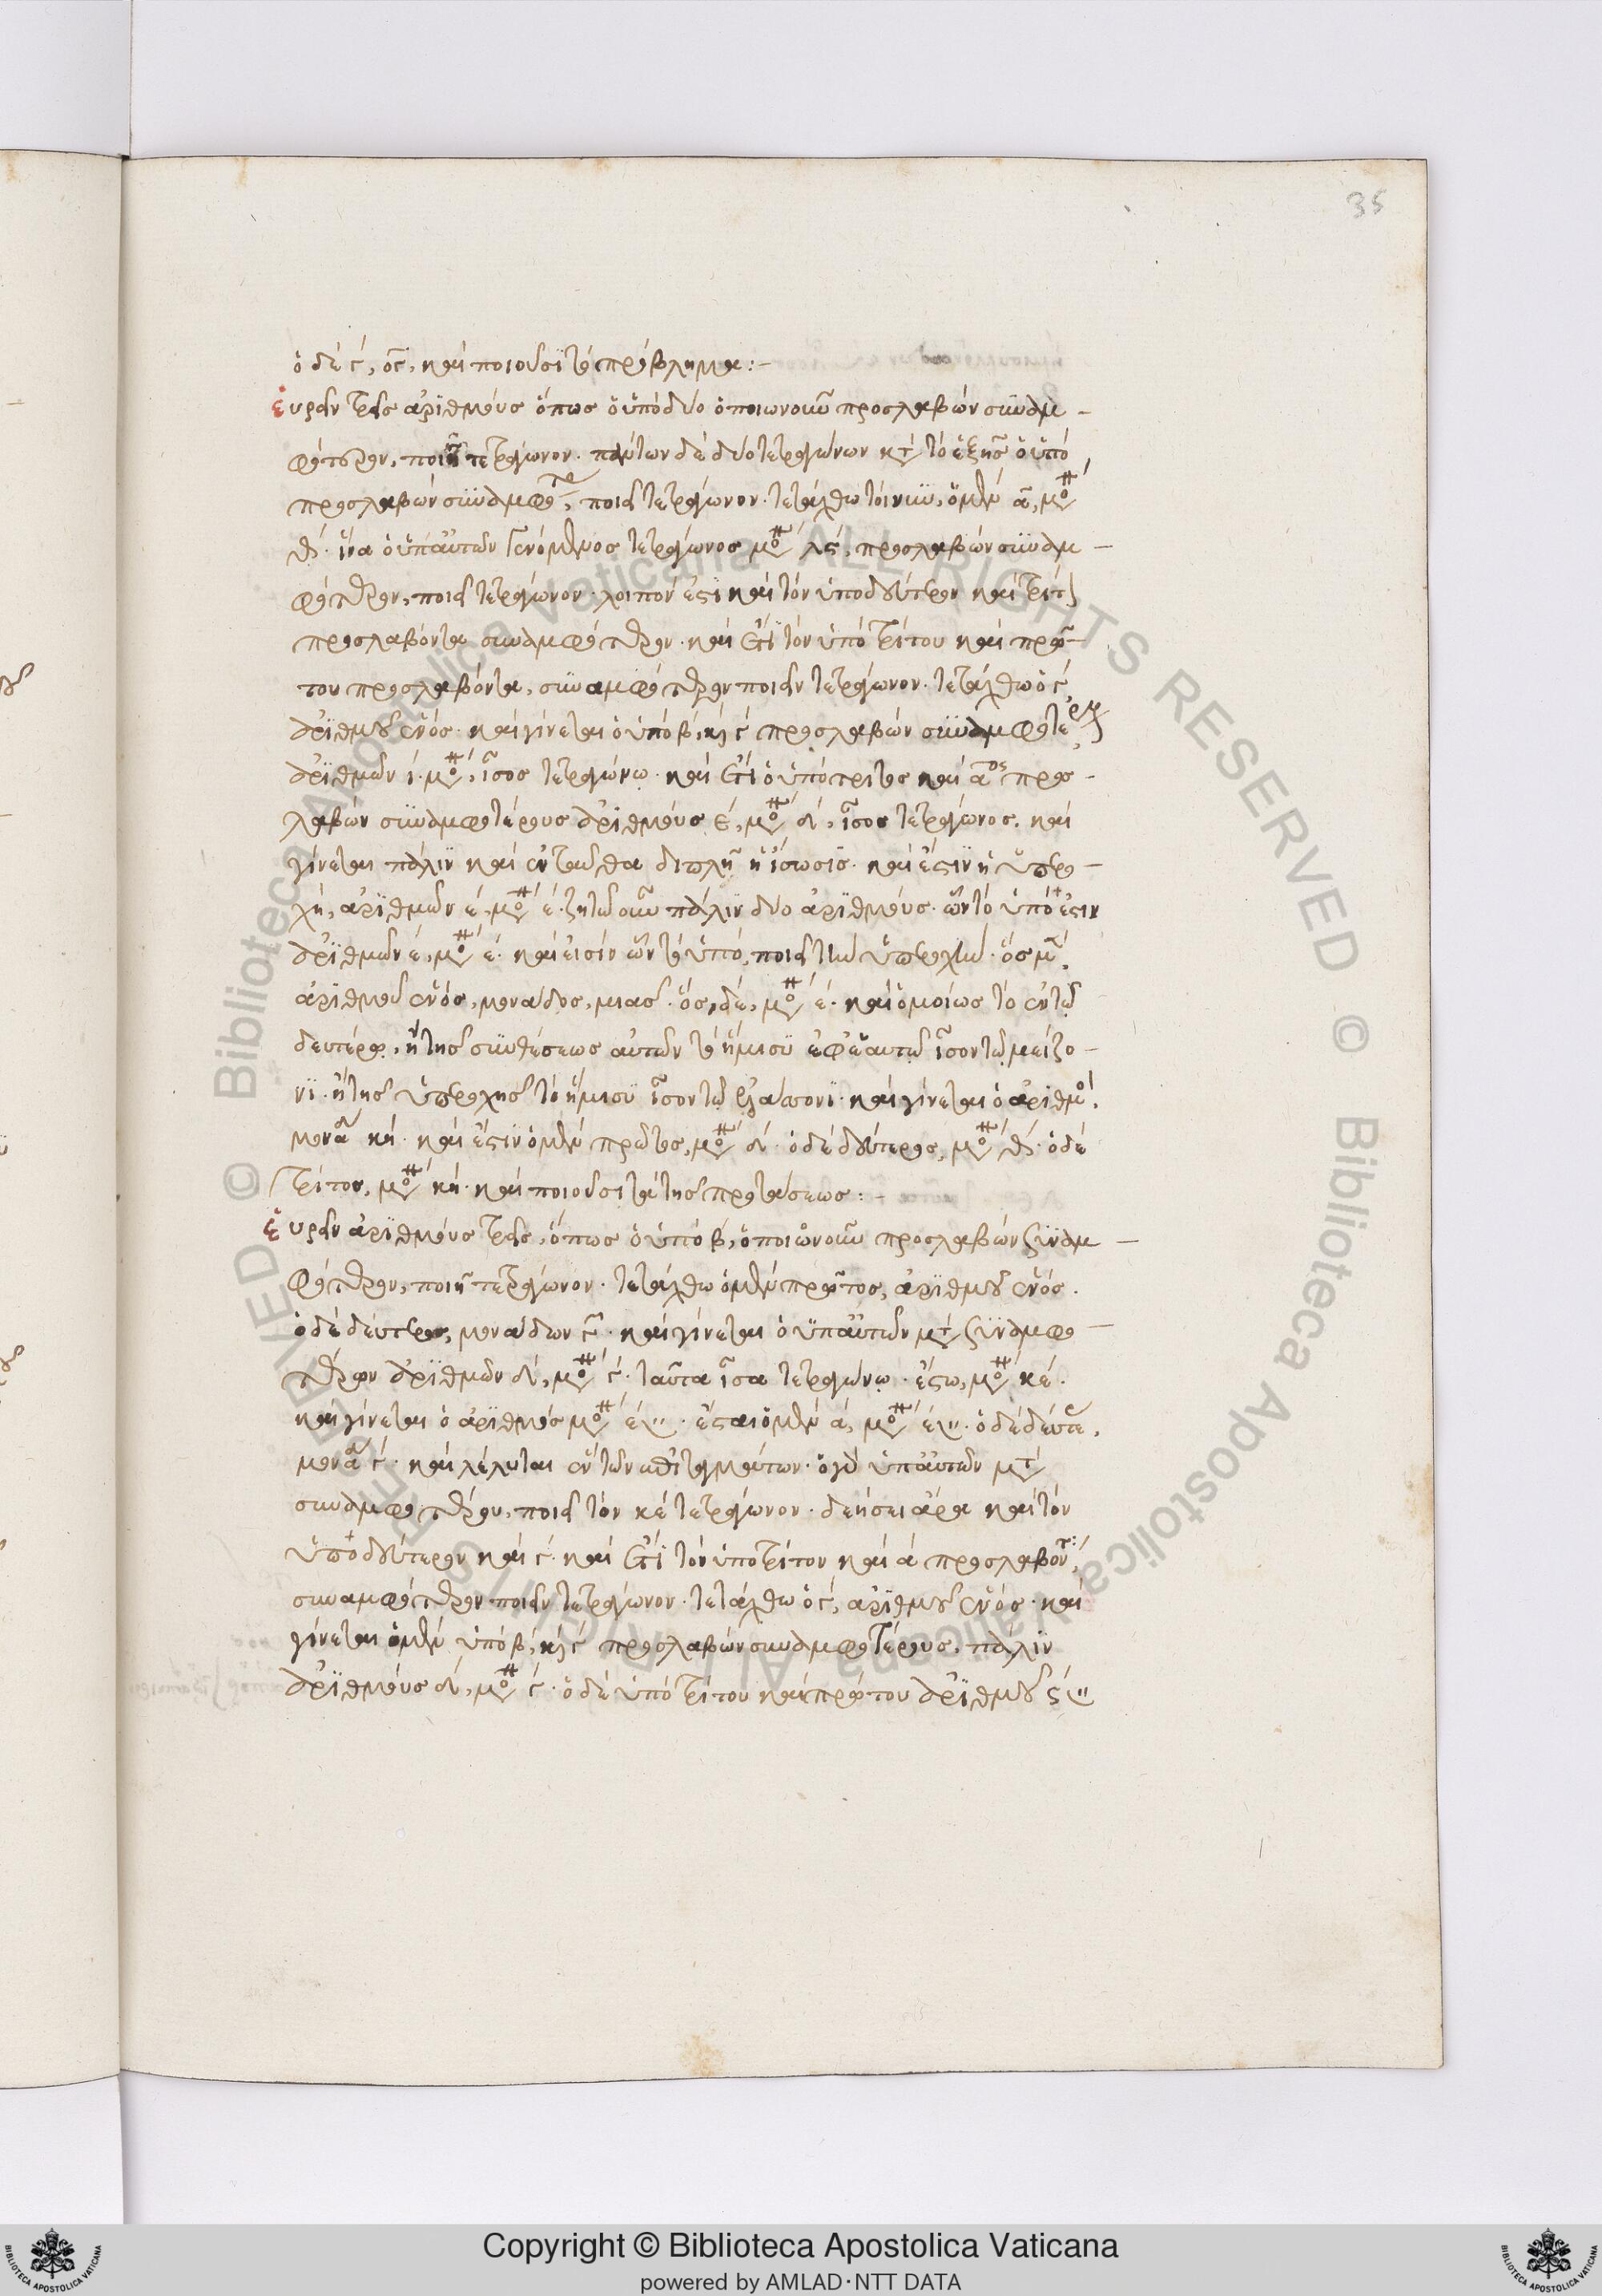 35
ὁ δὲ γ´, ος, καὶ ποιοῦσι τὸ πρόβλημα :-
εὑρεῖν τρεῖς ἀριθμοὺς ὅπως ὁ ὑπὸ δύο ὁποιωνοῦν προσλαβὼν συναμ-
φότερον, ποιῇ τετράγωνον. πάντων δὲ δύο τετραγώνων κτ τὸ ἑξῆς ὁ ὑπὸ
προσλαβὼν συναμφοτ, ποιεῖ τετράγωνον. τετάχθω τοίνυν, ὁ μὲν α, μο
θ´. ἵνα ὁ ὑπ' αὐτῶν γενόμενος τετράγωνος μο λς´, προσλαβὼν συναμ-
φότερον, ποιεῖ τετράγωνον. λοιπόν ἐστι καὶ τὸν ὑπὸ δευτέρου καὶ τρίτ
προσλαβόντα συναμφότερον. καὶ ἔτι τὸν ὑπὸ τρίτου καὶ πρώ-
του προσλαβόντα, συναμφότερον ποιεῖν τετράγωνον. τετάχθω ὁ γ´
ἀριθμοῦ ἑνός. καὶ γίνεται ὁ ὑπὸ β´, κ γ´ προσλαβὼν συναμφότερ
ἀριθμῶν ι´. μο, ἴσος τετραγώνῳ. καὶ ἔτι ὁ ὑπὸ τρίτος καὶ αος προσ-
λαβὼν συναμφοτέρους ἀριθμοὺς ε´, μο δ´, ἴσος τετράγωνος. καὶ
γίνεται πάλιν καὶ ἐνταῦθα διπλῆ ἡ ἴσωσις. καὶ ἔστιν ἡ ὑπερο-
χή, ἀριθμῶν ε´, μο ε´. ζητῶ οὖν πάλιν δύο ἀριθμούς. ὧν τὸ ὑπό ἐστιν
ἀριθμῶν ε´, μο ε´. καὶ εἰσὶν ὧν τὸ ὑπό, ποιεῖ τὴν ὑπεροχήν. ὅς μ,
ἀριθμοῦ ἑνός, μονάδος, μιᾶς. ὅς, δέ, μο ε´. καὶ ὁμοίως τὸ ἐν τῷ
δευτέρῳ, ἢ τῆς συνθέσεως αὐτῶν τὸ ἥμισυ ἐφ' ἑαυτῷ ἴσον τῷ μείζο-
νι. ἢ τῆς ὑπεροχῆς τὸ ἥμισυ ἴσον τῷ ἐλάσσονι. καὶ γίνεται ὁ ἀριθμο,
μονα κη´. καὶ ἔστιν ὁ μὲν πρῶτος, μο δ´. ὁ δὲ δεύτερος, μο θ´. ὁ δὲ
τρίτος, μο κη´. καὶ ποιοῦσι τὰ τῆς προτάσεως :-
εὑρεῖν ἀριθμοὺς τρεῖς, ὅπως ὁ ὑπὸ β´, ὁποιωνοῦν προσλαβὼν συναμ-
φότερον, ποιῇ τετράγωνον. τετάχθω ὁ μὲν πρῶτος, ἀριθμοῦ ἑνός.
ὁ δὲ δεύτερος, μονάδων γ. καὶ γίνεται ὁ ὑπ' αὐτῶν μτ συναμφο-
τέρων ἀριθμῶν δ´, μο γ´. ταῦτα ἴσα τετραγώνῳ. ἔστω, μο κε´.
καὶ γίνεται ὁ ἀριθμὸς μο ε´. ἔσται ὁ μὲν α´, μο ε´. ὁ δὲ δευτε,
μονα γ´. καὶ λέλυται ἓν τῶν ἐπιταγμάτων. ὁ γὰρ ὑπ' αὐτῶν μτ
συναμφοτέρου, ποιεῖ τὸν κε´ τετράγωνον. δεήσει ἄρα καὶ τὸν
ὑπὸ δευτέρου καὶ γ´. καὶ ἔτι τὸν ὑπὸ τρίτου καὶ α´ προσλαβοντ,
συναμφότερον ποιεῖν τετράγωνον. τετάχθω ὁ γ´, ἀριθμοῦ ἑνός. καὶ
γίνεται ὁ μὲν ὑπὸ β´, κ γ´ προσλαβὼν συναμφοτέρους, πάλιν
ἀριθμοὺς δ´, μο γ´. ὁ δὲ ὑπὸ τρίτου καὶ πρώτου ἀριθμοῦ ς´
Copyright © Biblioteca Apostolica Vaticana
powered by AMLAD·NTT DATA